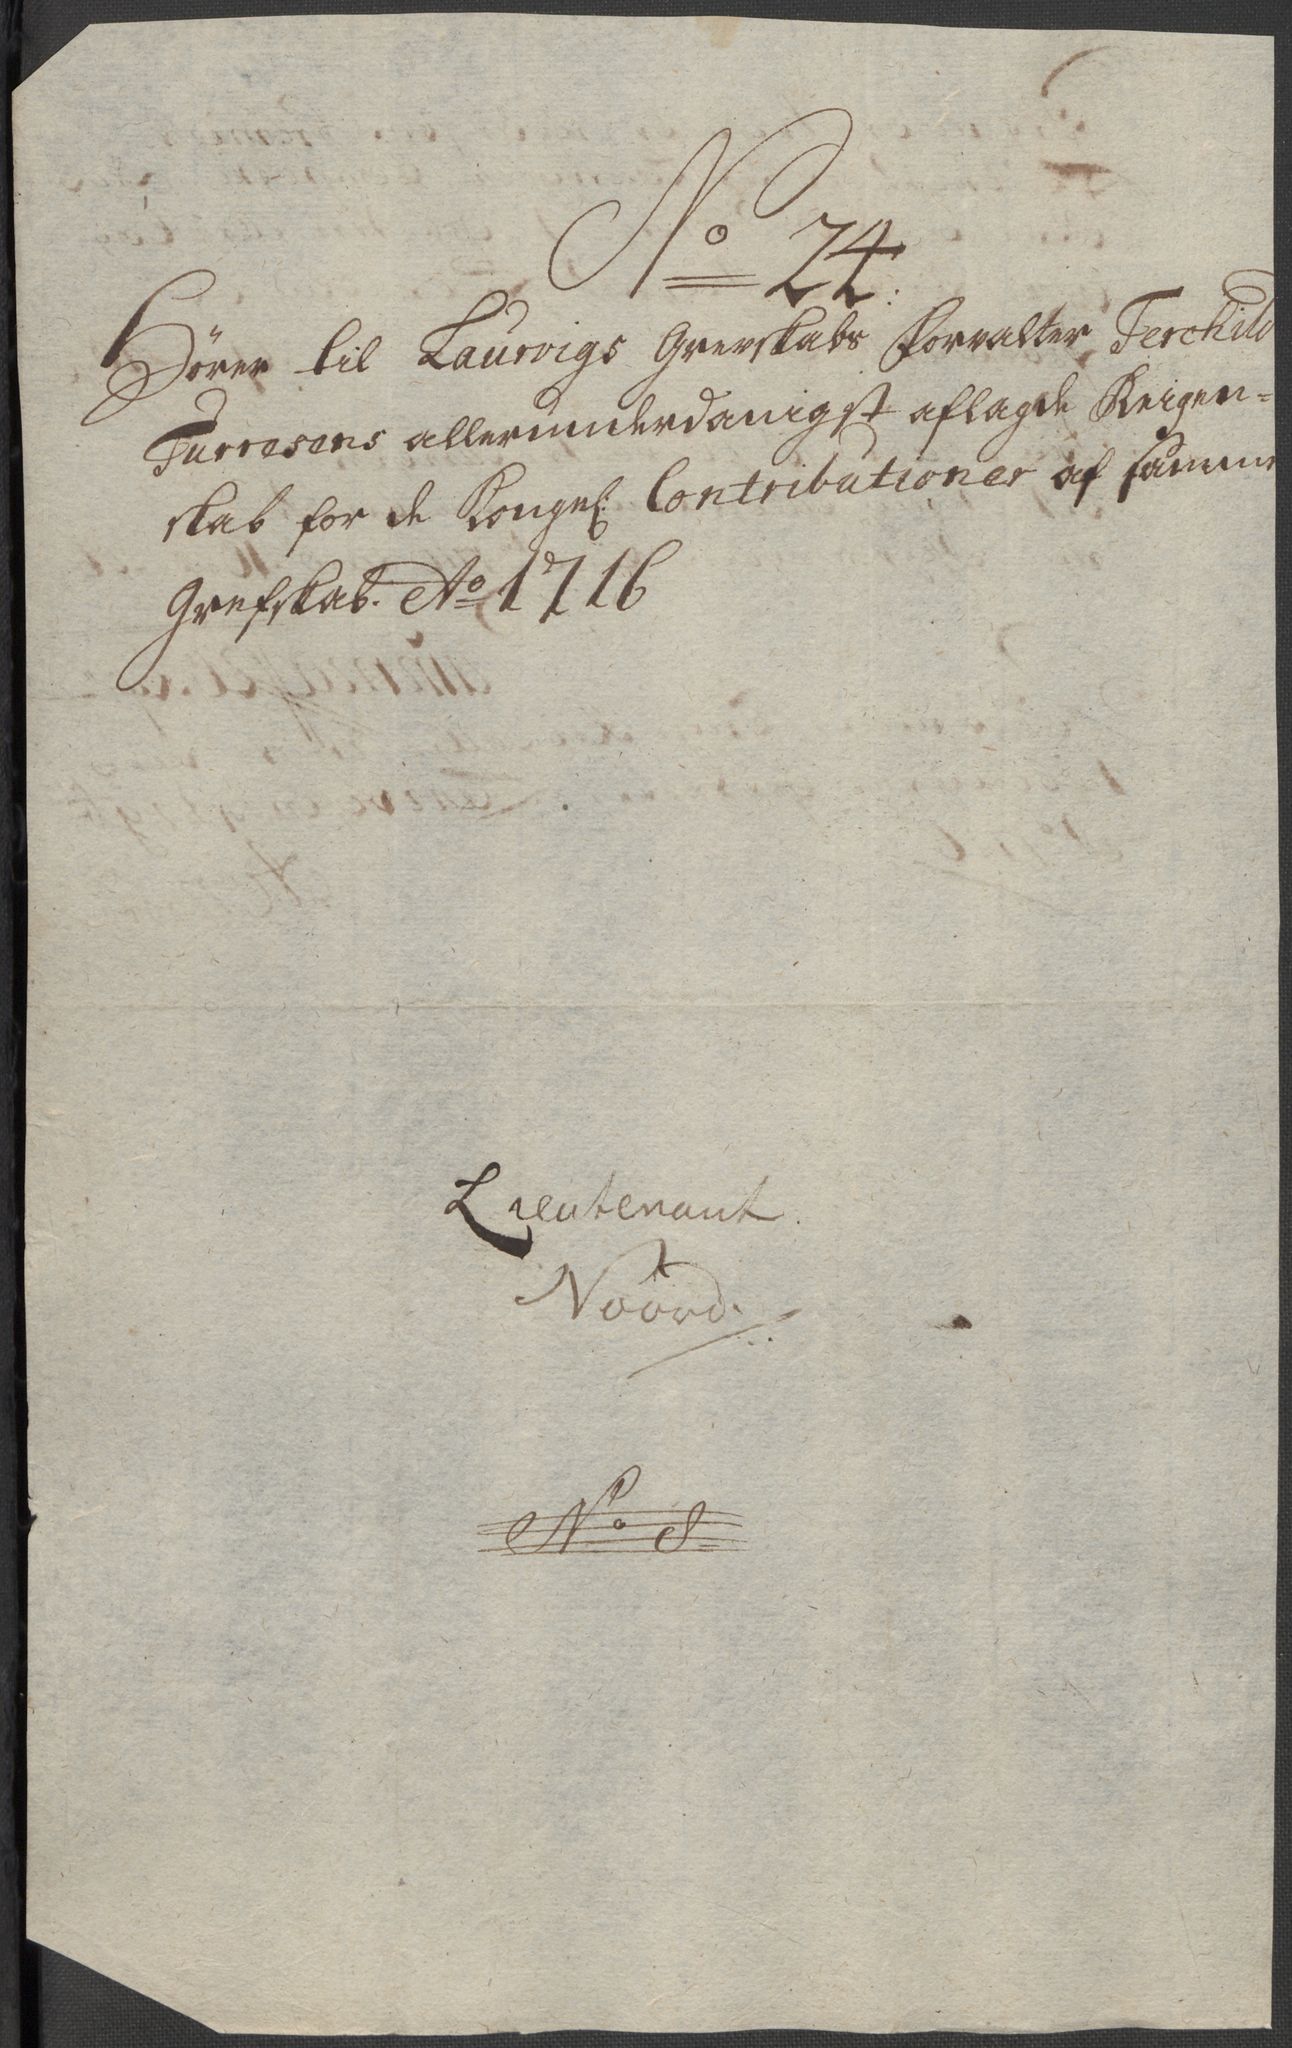 No 24:
Hörer til Laurvigs Grevskabs Forvalter Terchild
Turresens allerunderdanigst aflagde Reigen=
skab for de Kongel: Contributioner af samme
Grefskab. Ao 1716
Lieutenant
Noord.
No 8